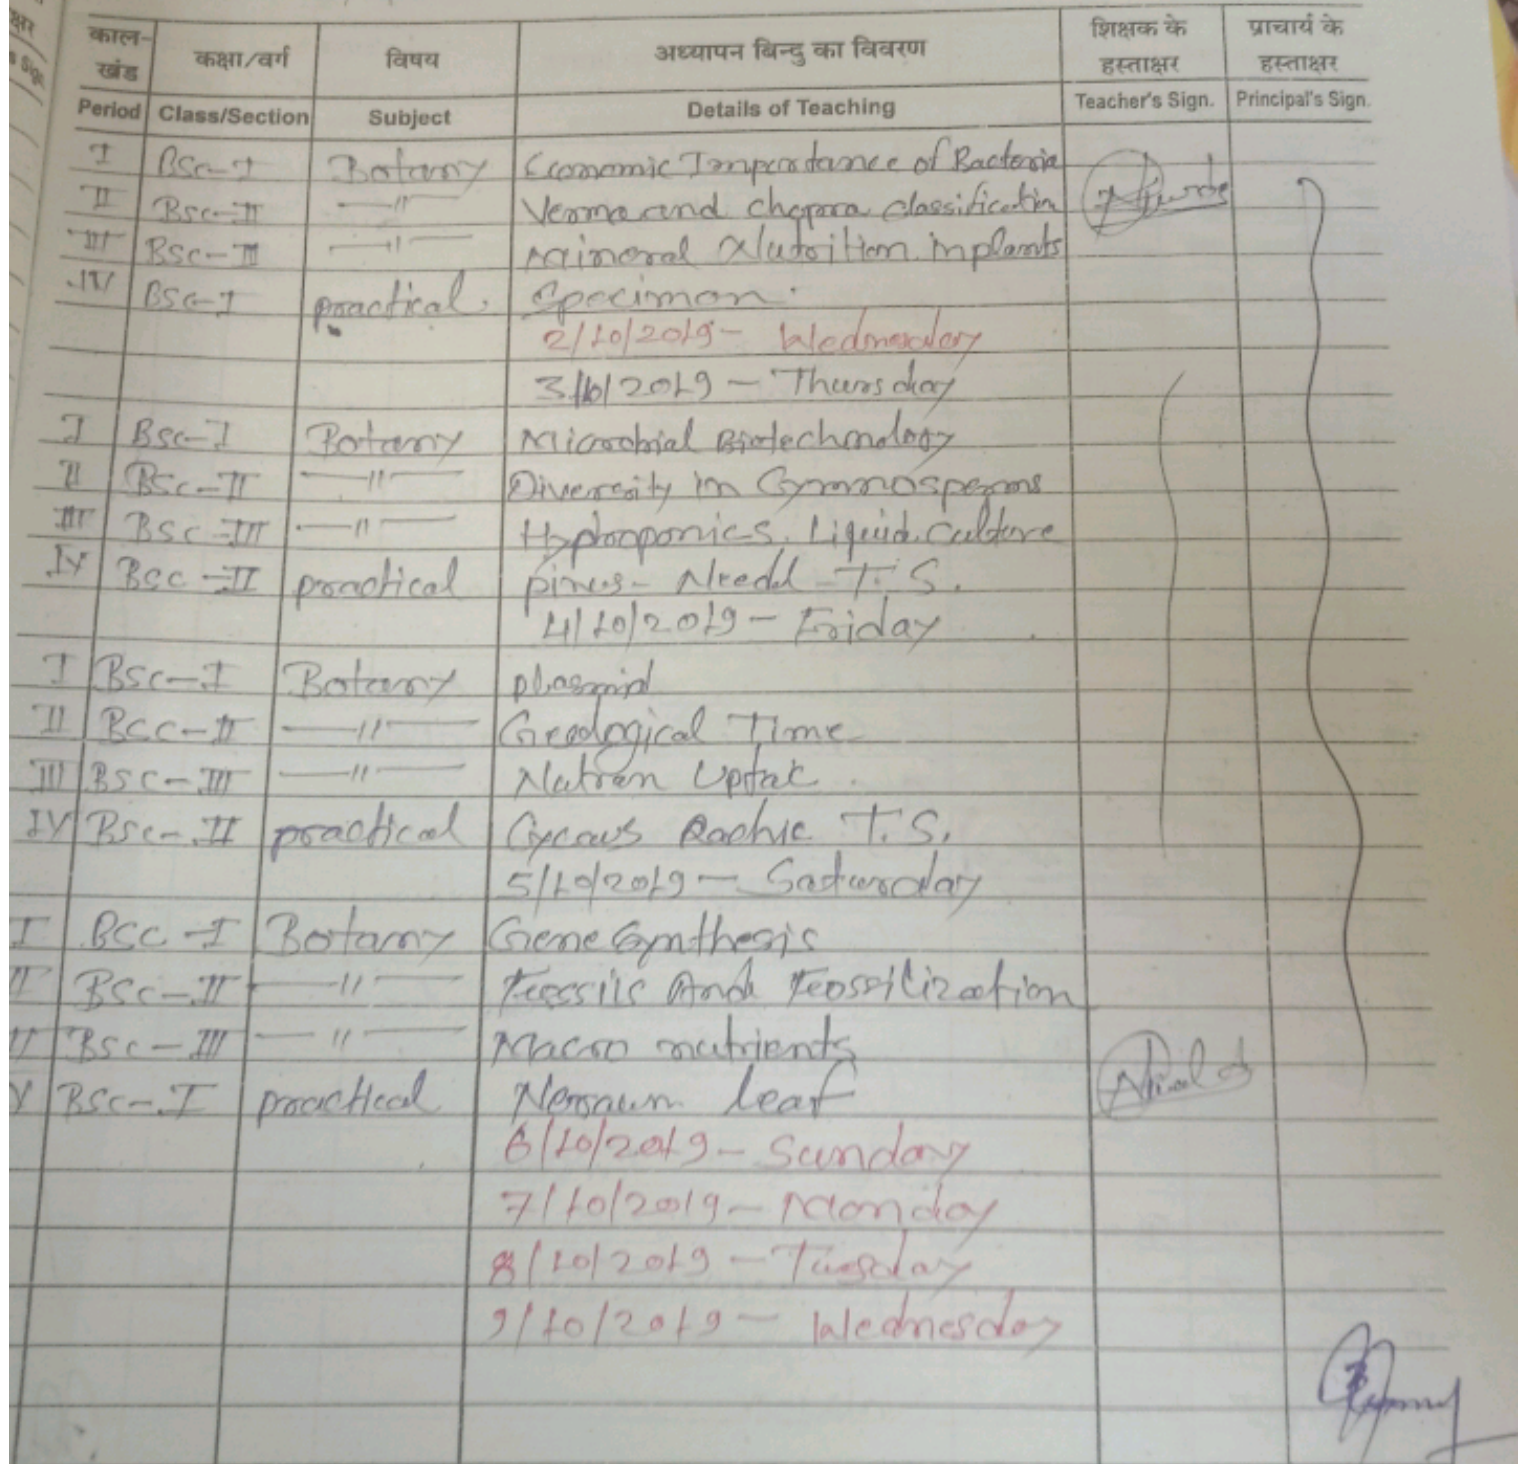 काल-खंड कक्षा/वर्ग विषय अध्यापन बिन्दु का विवरण शिक्षक के हस्ताक्षर प्राचार्य के हस्ताक्षर
Period Class/Section Subject Details of Teaching Teacher's Sign. Principal's Sign.
I BSc-I Botany Economic Importance of Bacteria
II BSc-II —"— Verma and Chopra classification
III BSc-III —"— Mineral Nutrition in plants
IV BSc-I practical. Specimen.
2/10/2019 - Wednesday
3/10/2019 - Thursday
I BSc-I Botany Microbial Biotechnology
II BSc-II —"— Diversity in Gymnosperms
III BSc-III —"— Hydroponics. Liquid. Culture
IV BSc-II practical pinus- Needl T.S.
4/10/2019 - Friday
I BSc-I Botany plasmid
II BSC-II —"— Geological Time
III BSC-III —"— Uptak.
IV BSc-II practical T.S.
5/10/2019 - Saturday
I BSC-I Botany Gene Synthesis
II BSc-II —"— Fossils And Fossilization
II BSc-III —"— Macro nutrients
V BSc-I practical leaf
6/10/2019 - Sunday
7/10/2019 - Monday
8/10/2019 - Tuesday
9/10/2019 - Wednesday